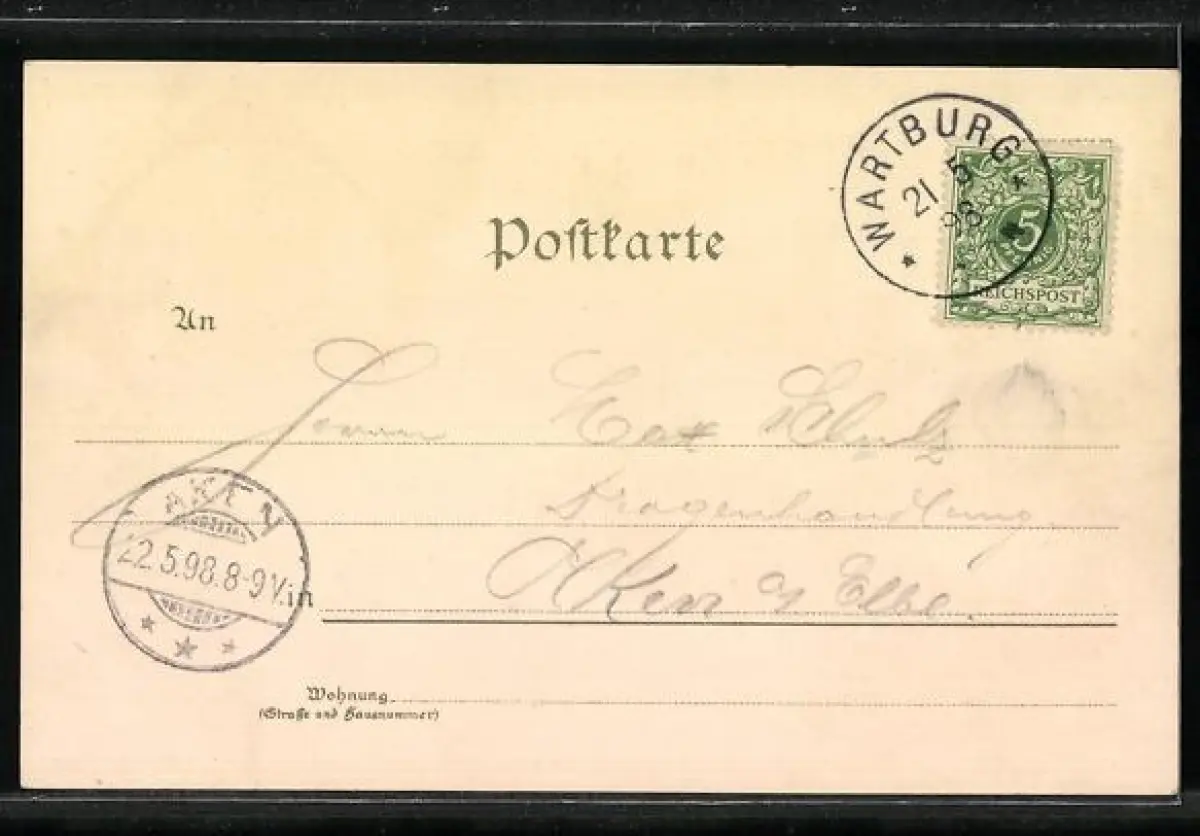 WARTBURG
21 5
98
5
REICHSPOST
Postkarte
An
Herrn Max Schulz
Drogenhandlung
AKEN
22.5.98.8-9V.
in Aken a/ Elbe.
Wohnung
(Straße und Hausnummer)